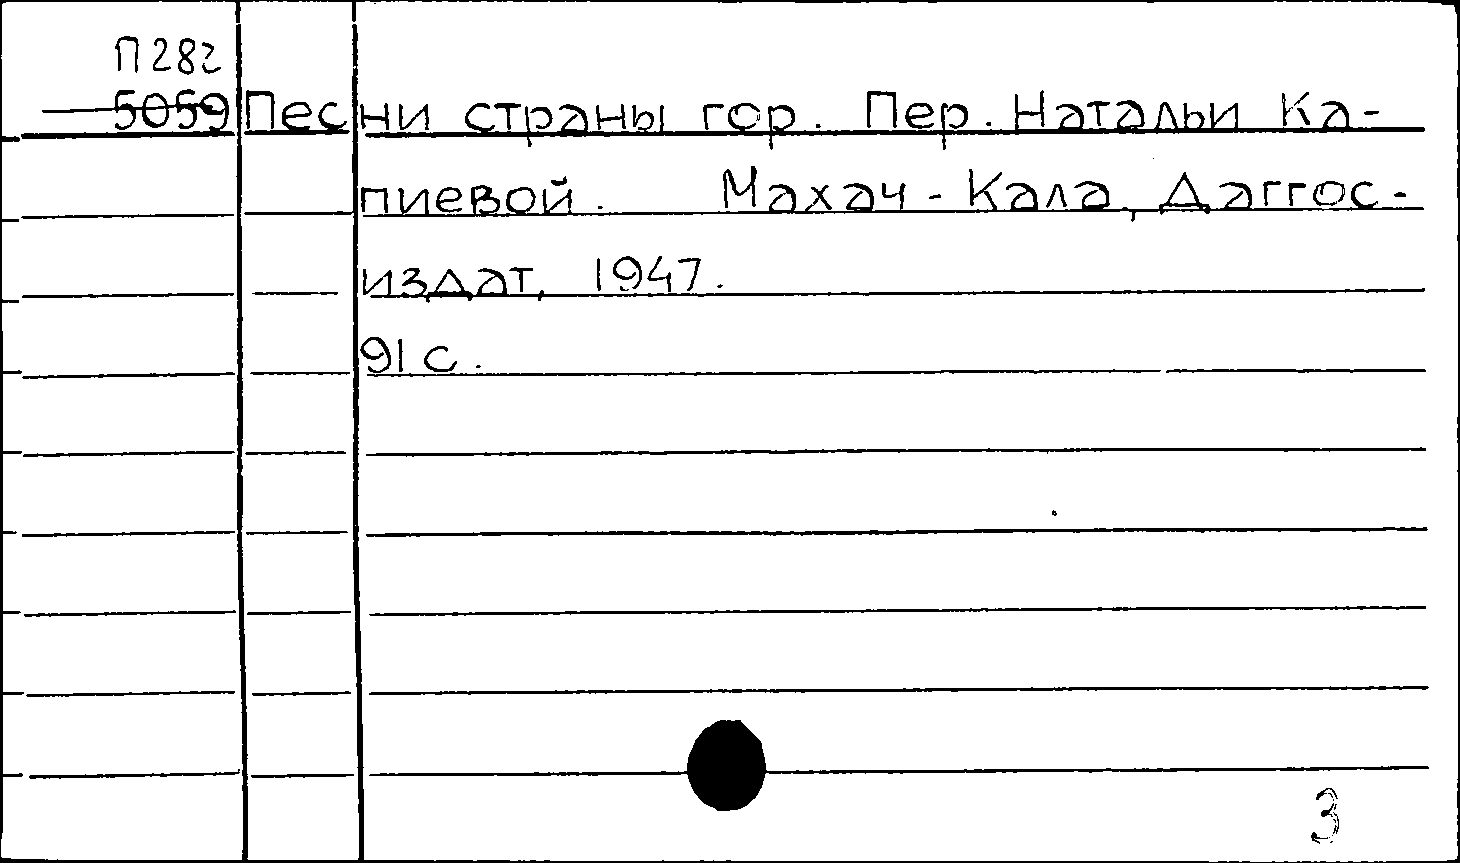 П282
5059 Песни страны гор. Пер. Натальи Ка-
пиевой. Махач-Кала, Даггос-
издат, 1947.
91 с.
3